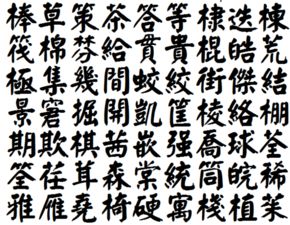 棒草策茶答等棣迭棟
筏棉棼給貫貴棍皓荒
極集幾間蛟絞街傑結
景窘掘開凱筐棱絡棚
期欺棋茜嵌强喬球荃
筌荏茸森棠統筒皖稀
雅雁堯椅硬寓棧植茱